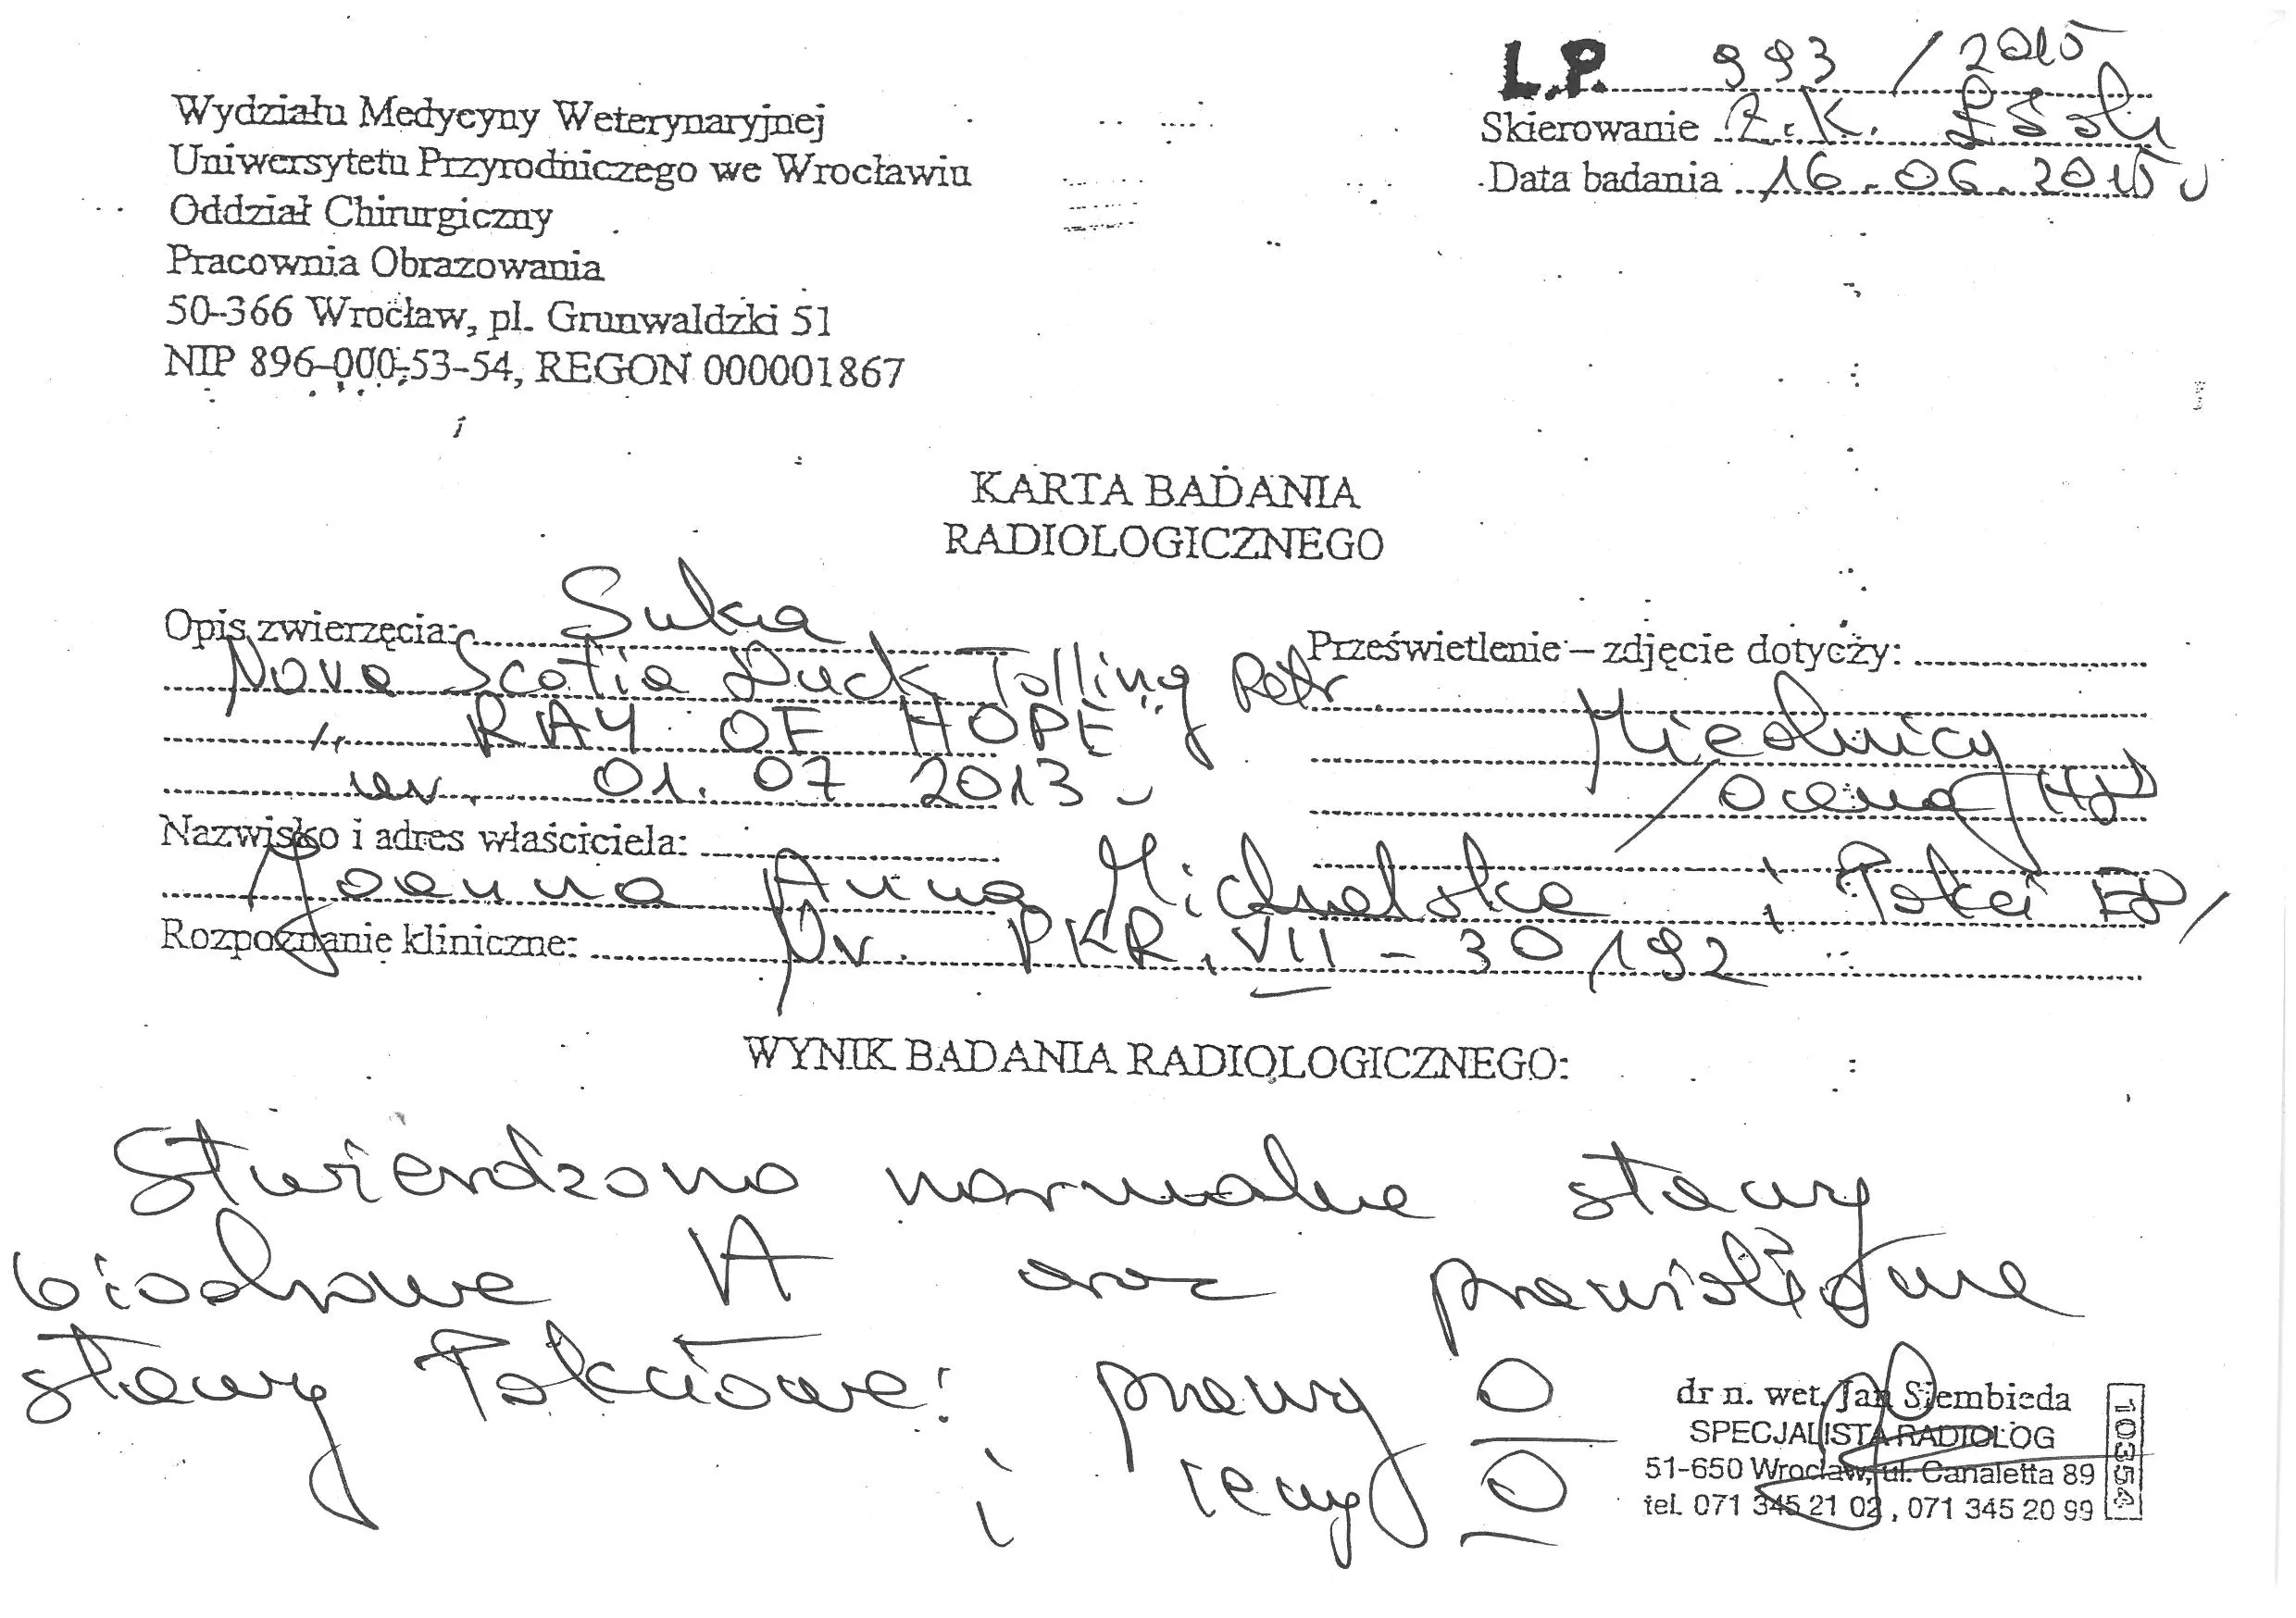 L.P. 993 / 2015
Skierowanie Z.K.
Data badania 16.06.2015
Wydziału Medycyny Weterynaryjnej
Uniwersytetu Przyrodniczego we Wrocławiu
Oddział Chirurgiczny
Pracownia Obrazowania
50-366 Wrocław, pl. Grunwaldzki 51
NIP 896-000-53-54, REGON 000001867
KARTA BADANIA
RADIOLOGICZNEGO
Opis zwierzęcia: Suka
Nova Scotia Duck Tolling Retr
"RAY OF HOPE"
ur. 01.07 2013
Prześwietlenie – zdjęcie dotyczy:
Miednicy
ocena HD
i łokci ED
Nazwisko i adres właściciela:
Joanna Anna Michalska
Rozpoznanie kliniczne: Nr. PKR. VII - 30192
WYNIK BADANIA RADIOLOGICZNEGO:
Stwierdzono normalne stawy
biodrowe A oraz prawidłowe
stawy łokciowe: prawy 0
i lewy 0
dr n. wet. Jan Siembieda
SPECJALISTA RADIOLOG
51-650 Wrocław, ul. Canaletta 89
tel. 071 345 21 02, 071 345 20 99
10354